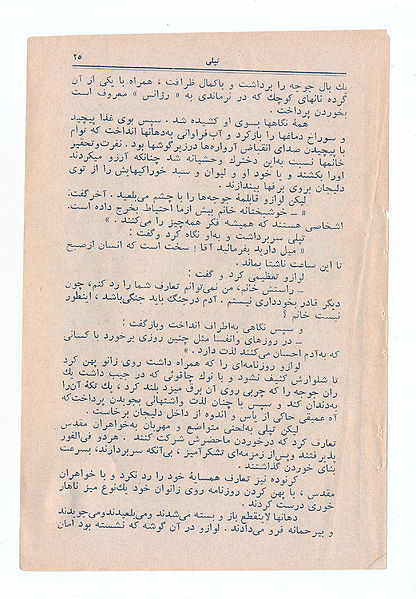 تپلی
۲۵
یك بال جوجه را برداشت و باکمال ظرافت ، همراه با یکی از آن
گرده نانهای کوچك که در نرماندی به « رژانس » معروف است
بخوردن پرداخت .
همهٔ نگاهها بسوی او کشیده شد . سپس بوی غذا پیچید
و سوراخ دماغها را بازکرد و آب‌فراوانی به‌دهانها انداخت که توأم
با پیچیدن صدای انقباض آرواره‌ها درزیرگوشها بود . نفرت‌وتحقیر
خانمها نسبت به‌این دخترك وحشیانه شد چنانکه آرزو میکردند
اورا بکشند و یا خود او و لیوان و سبد خوراکیهایش را از توی
دلیجان بروی برفها بیندازند .
لیکن لوازو قابلمهٔ جوجه‌ها را با چشم می‌بلعید . آخر گفت:
« ــ خوشبختانه خانم بیش ازما احتیاط بخرج داده است.
اشخاصی هستند که همیشه فکر همه‌چیز را می‌کنند . »
تپلی سربرداشت و به‌او نگاه کرد وگفت :
« میل دارید بفرمائید آقا ! سخت است که انسان ازصبح
تا این ساعت ناشتا بماند .
لوازو تعظیمی کرد و گفت :
ــ راستش خانم، من نمی‌توانم تعارف شما را رد کنم، چون
دیگر قادر بخودداری نیستم . آدم درجنگ باید جنگی‌باشد ، اینطور
نیست خانم ؟
و سپس نگاهی به‌اطراف انداخت وبازگفت :
ــ در روزهای وانفسا مثل چنین روزی برخورد با کسانی
که به‌آدم احسان می‌کنند لذت دارد . »
لوازو روزنامه‌ای را که همراه داشت روی زانو پهن کرد
تا شلوارش کثیف نشود و با نوك چاقوئی که در جیب داشت یك
ران جوجه را که چربی روی آن برق میزد بلند کرد ، یك تکهٔ آن‌را
به‌دندان کند و سپس با چنان لذت واشتهائی بجویدن پرداخت‌که
آه عمیقی حاکی از یأس و اندوه از داخل دلیجان برخاست .
لیکن تپلی به‌لحنی متواضع و مهربان به‌خواهران مقدس
تعارف کرد که درخوردن ماحضرش شرکت کنند . هردو فی‌الفور
پذیرفتند وپس‌از زمزمه‌ای تشکرآمیز ، بی‌آنکه سربردارند، بسرعت
بنای خوردن گذاشتند .
کرنوده نیز تعارف همسایهٔ خود را رد نکرد و با خواهران
مقدس ، با پهن کردن روزنامه روی زانوان خود یك‌نوع میز ناهار
خوری درست کردند .
دهانها لاینقطع باز و بسته می‌شدند ومی‌بلعیدندومی‌جویدند
و بیرحمانه فرو می‌دادند . لوازو در آن گوشه که نشسته بود امان